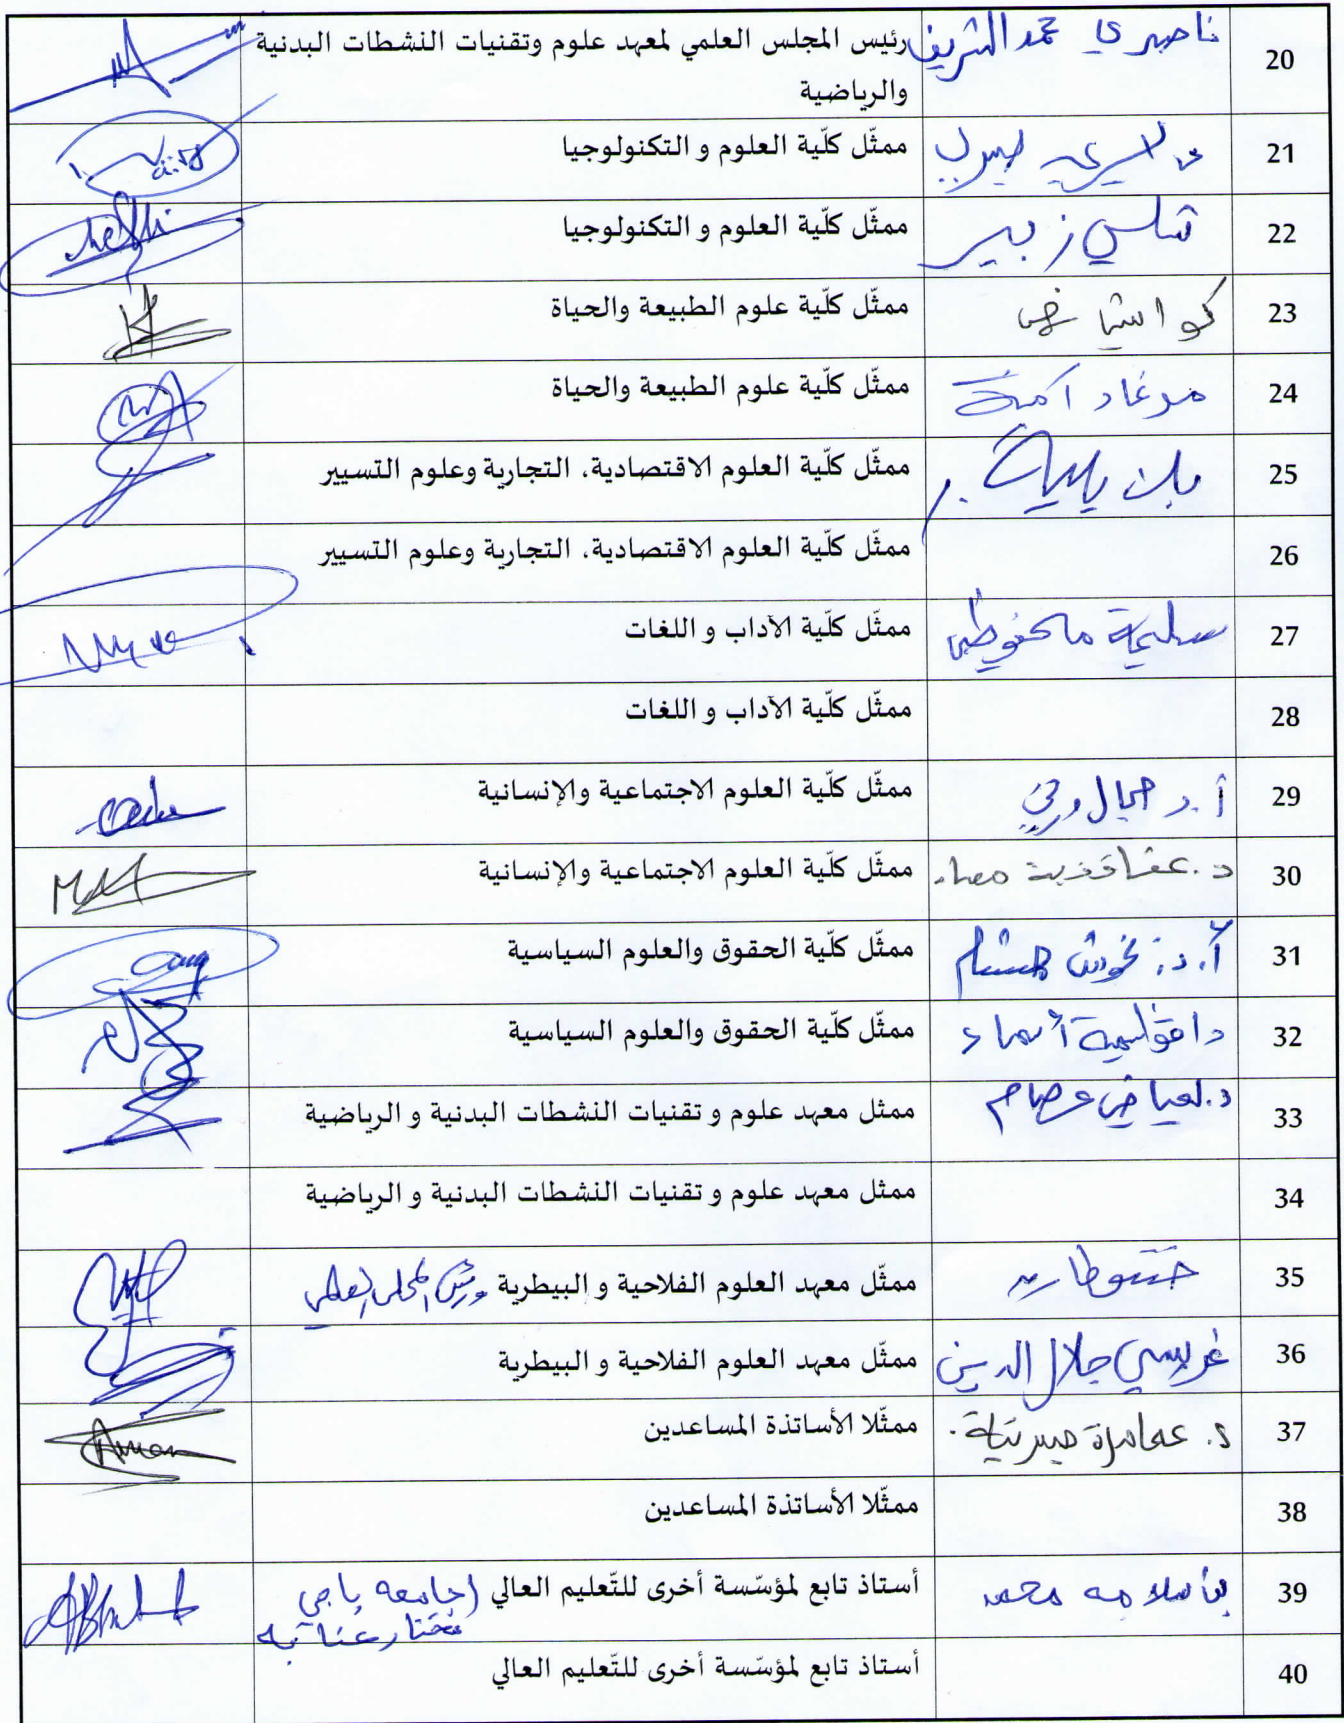 20 ناصري محمد الشريف رئيس المجلس العلمي لمعهد علوم وتقنيات النشطات البدنية
والرياضية
21 ممثّل كلّية العلوم و التكنولوجيا
22 زبير ممثّل كلّية العلوم و التكنولوجيا
23 ممثّل كلّية علوم الطبيعة والحياة
24 مرغاد آمنة ممثّل كلّية علوم الطبيعة والحياة
25 ممثّل كلّية العلوم الاقتصادية، التجارية وعلوم التسيير
26 ممثّل كلّية العلوم الاقتصادية، التجارية وعلوم التسيير
27 سليمة محفوظي ممثّل كلّية الآداب و اللغات
28 ممثّل كلّية الآداب و اللغات
29 أ.د جمال ممثّل كلّية العلوم الاجتماعية والإنسانية
30 د. ممثّل كلّية العلوم الاجتماعية والإنسانية
31 أ.د: هشام ممثّل كلّية الحقوق والعلوم السياسية
32 أسماء ممثّل كلّية الحقوق والعلوم السياسية
33 د.لعياضي عصام ممثل معهد علوم و تقنيات النشطات البدنية و الرياضية
34 ممثل معهد علوم و تقنيات النشطات البدنية و الرياضية
35 ممثّل معهد العلوم الفلاحية و البيطرية ورئيس المجلس العلمي
36 غريسي جلال الدين ممثّل معهد العلوم الفلاحية و البيطرية
37 د. عمامرة ممثّلا الأساتذة المساعدين
38 ممثّلا الأساتذة المساعدين
39 بن سلامه محمد أستاذ تابع لمؤسّسة أخرى للتّعليم العالي (جامعه باجي
مختار عنابه
40 أستاذ تابع لمؤسّسة أخرى للتّعليم العالي